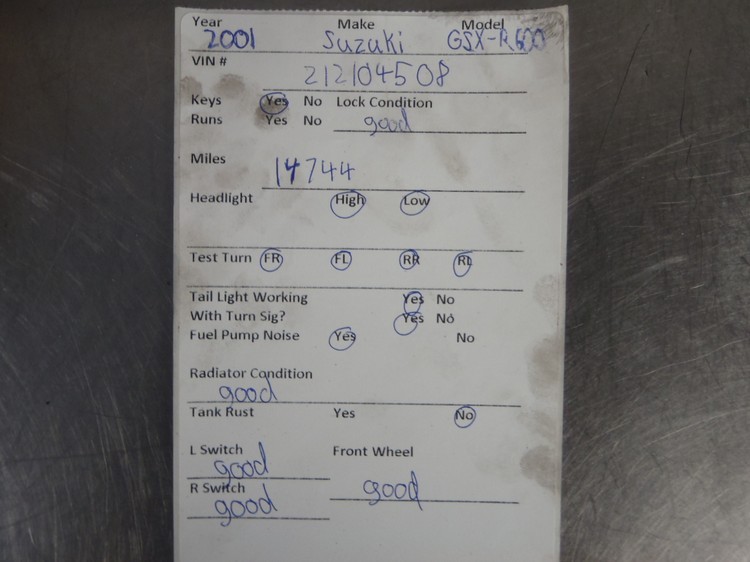 Year Make Model
2001 Suzuki GSX-R600
VIN # 212104508
Keys Yes No Lock Condition
Runs Yes No good
Miles 14744
Headlight High Low
Test Turn FR FL RR RL
Tail Light Working Yes No
With Turn Sig? Yes No
Fuel Pump Noise Yes No
Radiator Condition
good
Tank Rust Yes No
L Switch Front Wheel
good
R Switch good
good